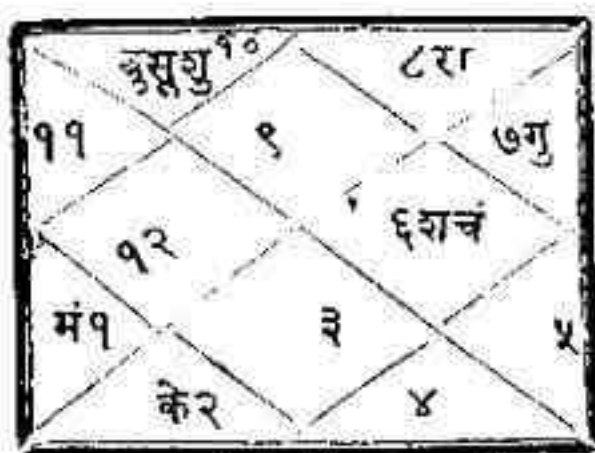 बुसूशु १०
८रा
११
९
७गु
१२
६शचं
मं१
३
५
के२
४